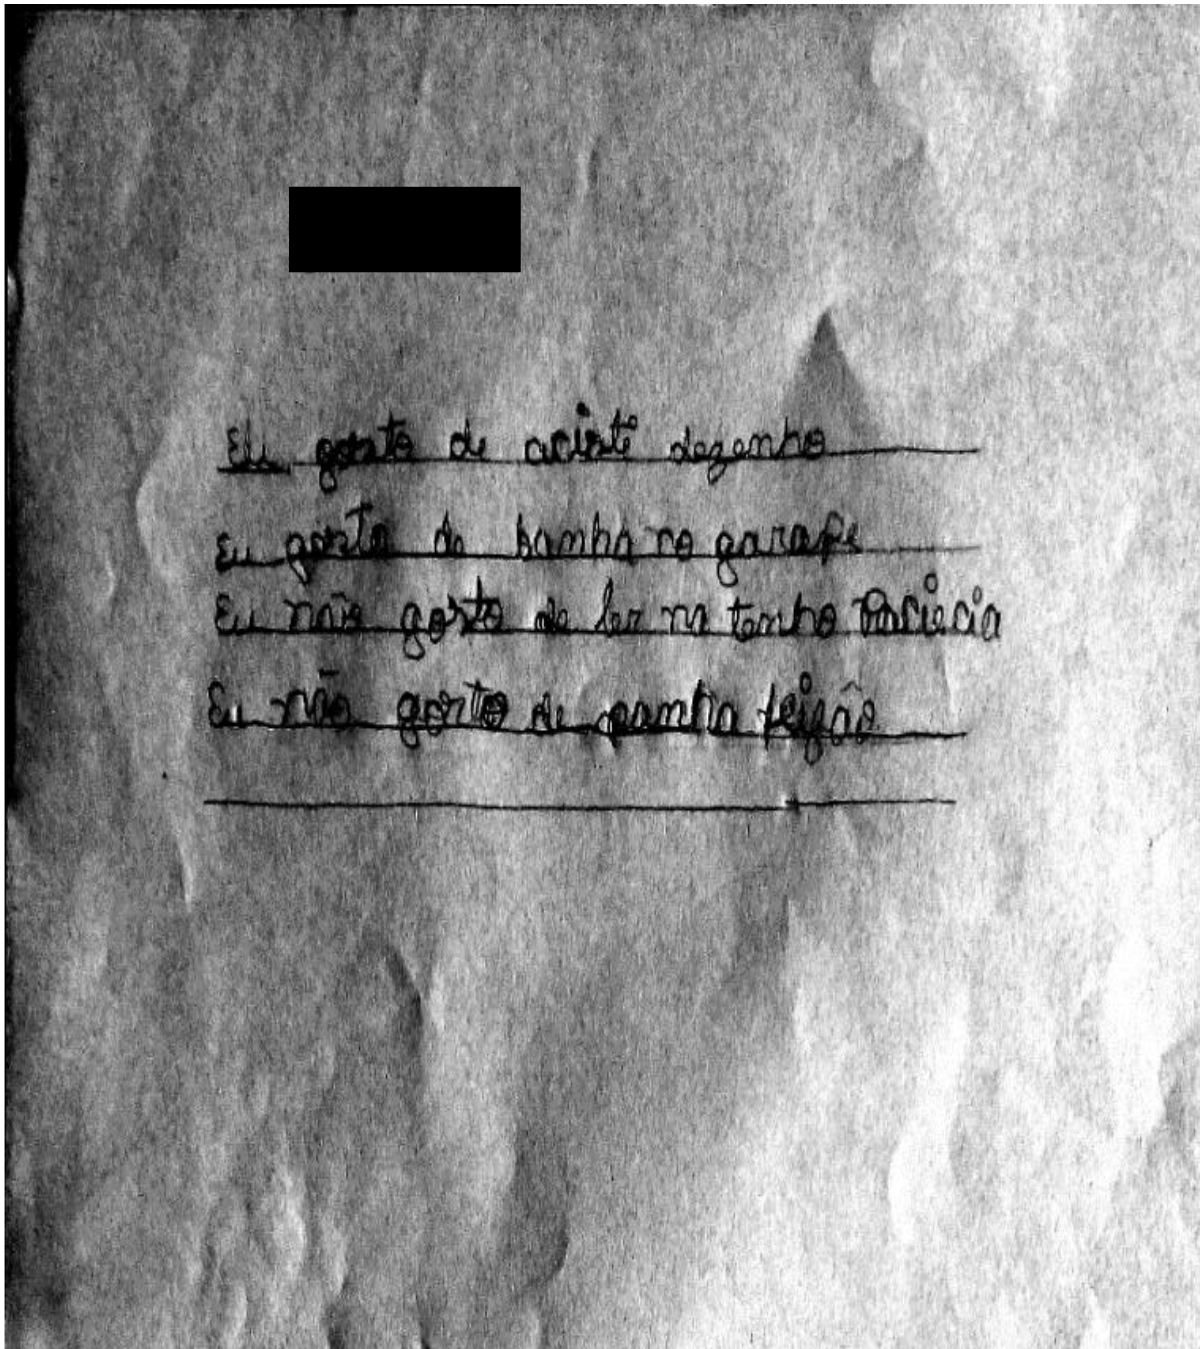 Eu gosto de acisti dezenho
Eu gosto de bamha no garape
Eu não gosto de ler na tenho Paciecia
Eu não gosto de panha feijão